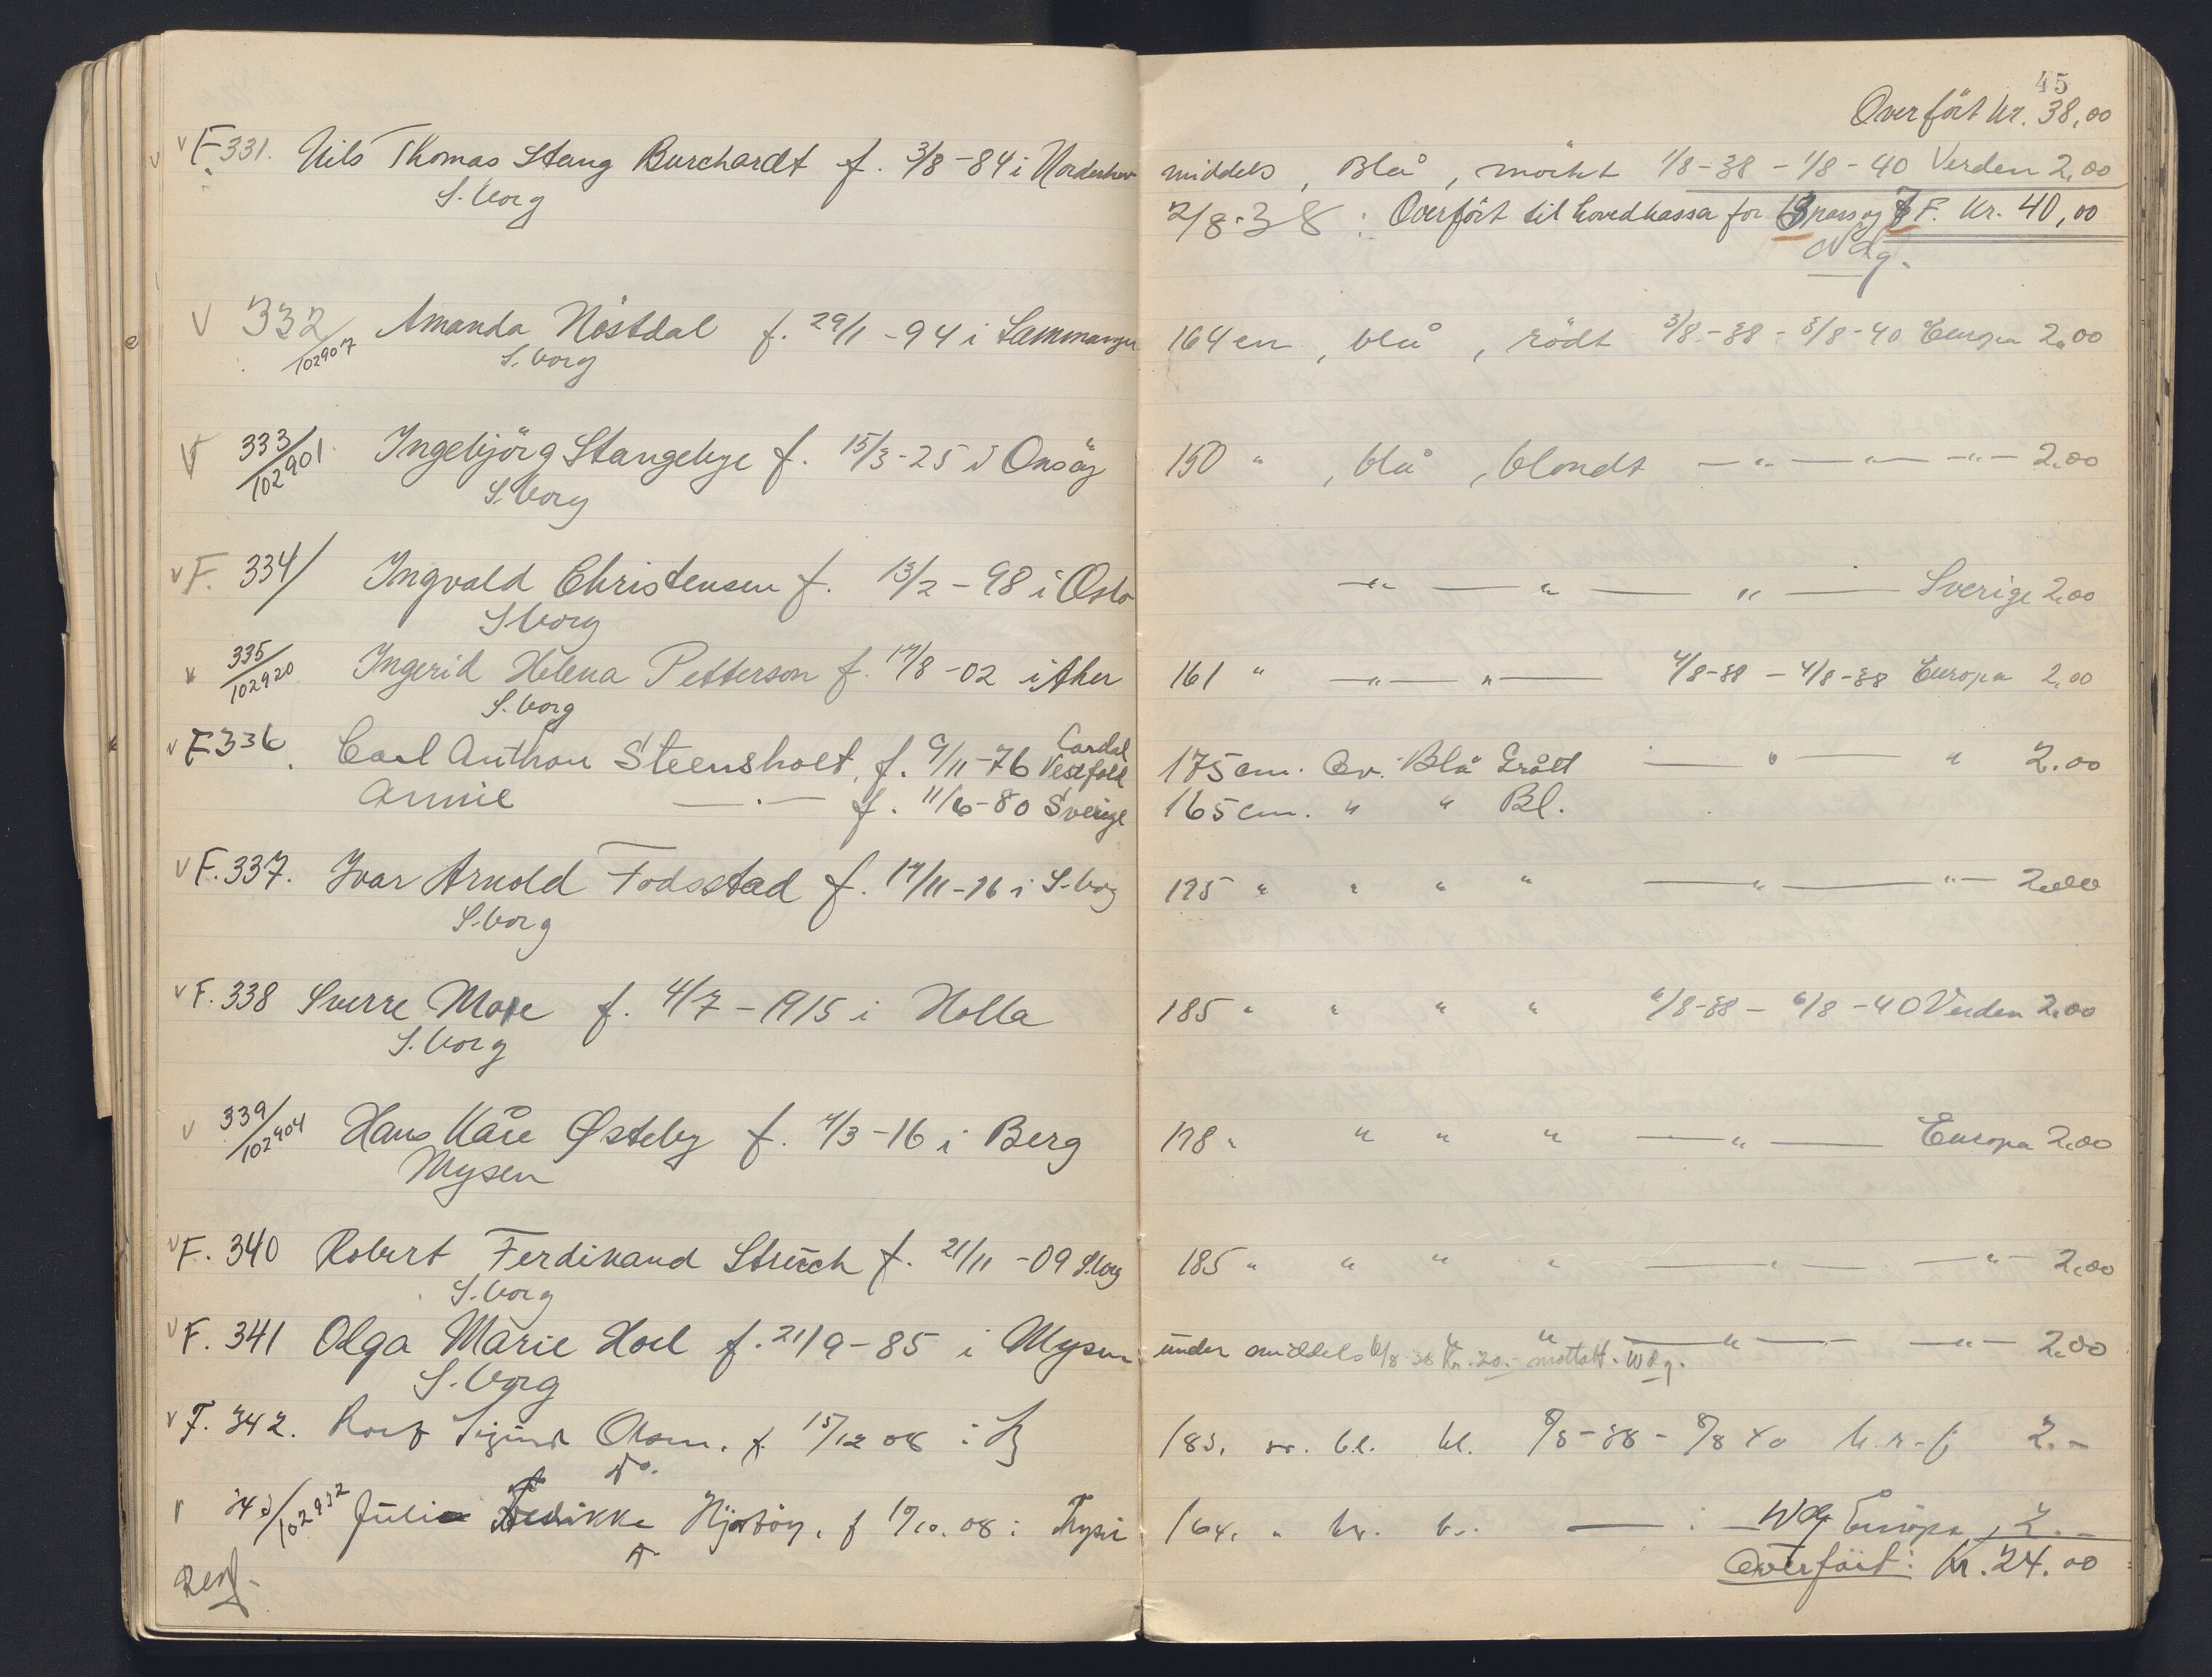 45
Overfört kr. 38,00
v F 331. Nils Thomas Stang Burchardt f. 3/8-84 i Norderhov middels, Blå, mörkt 1/8-38 - 1/8-40 Verden 2,00
S.borg 2/8-38: Overfört til hovedkassa for 13 pass og 7 F. Kr. 40,00
Wdg.
V 332/102907 Amanda Nöstdal f. 29/11-94 i Samnanger 164 cm, blå, rödt 3/8-38 - 3/8-40 Europa 2,00
S.borg
V 333/102901 Ingebjörg Stangebye f. 15/3-25 i Onsöy 150 " , blå, blondt —"— " —"— 2,00
S.borg
v F. 334/ Ingvald Christensen f. 13/2-98 i Oslo —"— " — " — Sverige 2,00
S.borg
v 335/102920 Ingerid Helena Petterson f. 17/8-02 i Aker 161 " —"— " — 4/8-38 - 4/8-38 Europa 2,00
S.borg
v F 336. Carl Anthon Steensholt, f. 9/11-76 Vestfold 175 cm. Ov. Blå Grått — " — " 2.00
Annie —"— f. 11/6-80 Sverige 165 cm. " " Bl.
v F. 337. Ivar Arnold Fodsstad f. 17/11-16 i S-borg 175 " " " " — " — "— 2,00
S.borg
v F. 338 Sverre Moe f. 4/7-1915 i Holla 185 " " " " 6/8-38 - 6/8-40 Verden 2,00
S.borg
v 339/102904 Hans Kåre Østeby f. 7/3-16 i Berg 178 " " " " — " — Europa 2,00
Mysen
v F. 340 Robert Ferdinand Struch f. 21/11-09 S.borg 185 " " " " — " — —"— 2,00
S.borg
v F. 341 Olga Marie Hoel f. 21/9-85 i Mysen under middels " " — " — —"— 2,00
S.borg 6/8-38 Kr. 20.- mottatt. Wdg.
v F. 342. Rolf Sigurd Olsen. f. 15/12 08 i 183. bl. bl. 8/8-38 - 8/8 40 2.-
Do.
343/102932 Julie Fredrikke f 19/10.08 i Trysil 164. " — : — Europa 2.-
Wdg
Overfört: Kr. 24.00